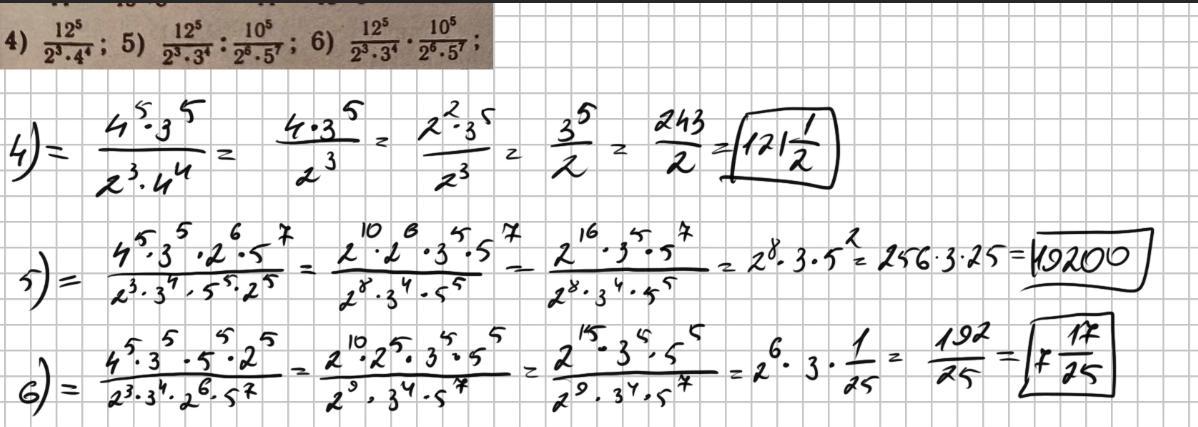 4) 12⁵/(2³·4⁴); 5) 12⁵/(2³·3⁴) : 10⁵/(2⁶·5⁷); 6) 12⁵/(2³·3⁴) · 10⁵/(2⁶·5⁷);
4) = (4⁵·3⁵)/(2³·4⁴) = (4·3⁵)/2³ = (2²·3⁵)/2³ = 3⁵/2 = 243/2 = 121 1/2
5) = (4⁵·3⁵·2⁶·5⁷)/(2³·3⁴·5⁵·2⁵) = (2¹⁰·2⁶·3⁵·5⁷)/(2⁸·3⁴·5⁵) = (2¹⁶·3⁵·5⁷)/(2⁸·3⁴·5⁵) = 2⁸·3·5² = 256·3·25 = 19200
6) = (4⁵·3⁵·5⁵·2⁵)/(2³·3⁴·2⁶·5⁷) = (2¹⁰·2⁵·3⁵·5⁵)/(2⁹·3⁴·5⁷) = (2¹⁵·3⁵·5⁵)/(2⁹·3⁴·5⁷) = 2⁶·3·1/25 = 192/25 = 7 17/25